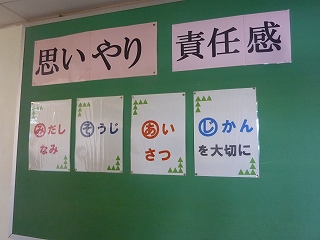 思いやり
責任感
みだし
なみ
そうじ
あい
さつ
じかん
を大切に